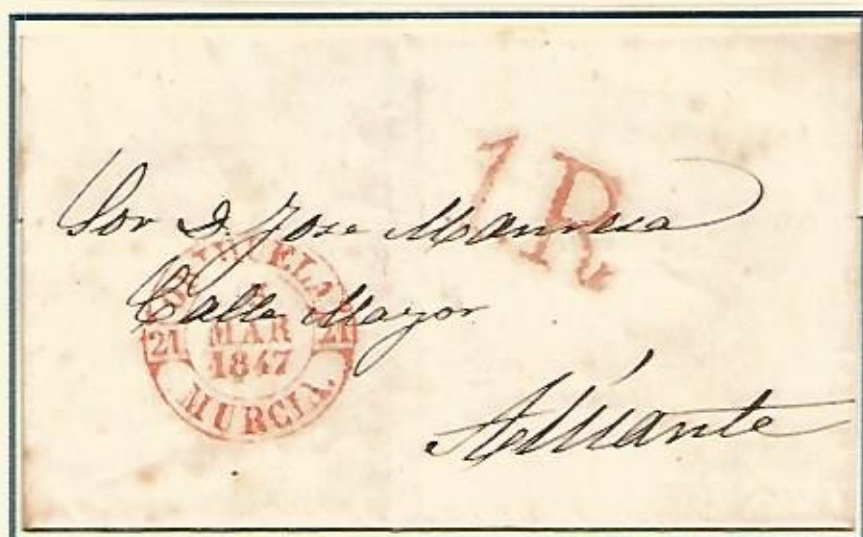 1R
Sor D. Jose Manresa
Calle Mayor
ORIHUELA
21 MAR 21
1847
MURCIA.